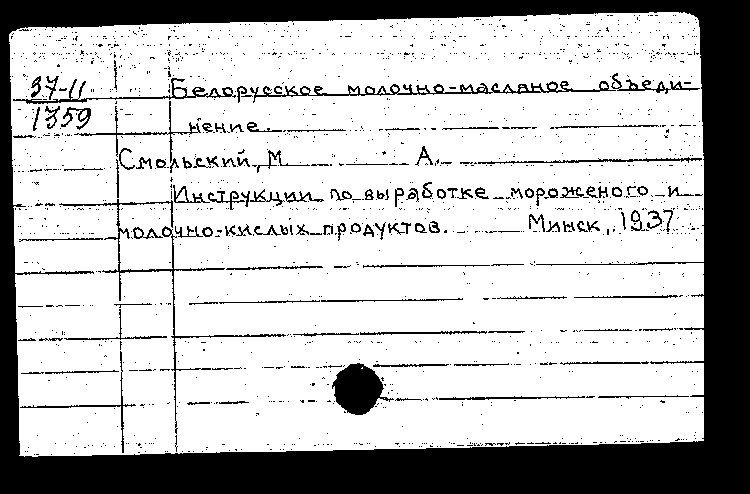 37-11
1359
Белорусское молочно-масляное объеди-
нение.
Смольский, М А.
Инструкции по выработке мороженого и
молочно-кислых продуктов. Минск, 1937